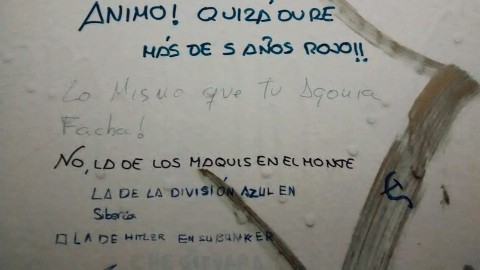 ANIMO! QUIZÁ DURE
MÁS DE 5 AÑOS ROJO!!
Lo Mismo que tu Agonia
Facha!
NO, LA DE LOS MAQUIS EN EL MONTE
LA DE LA DIVISIÓN AZUL EN
Siberia
LA DE HITLER EN SU BUNKER